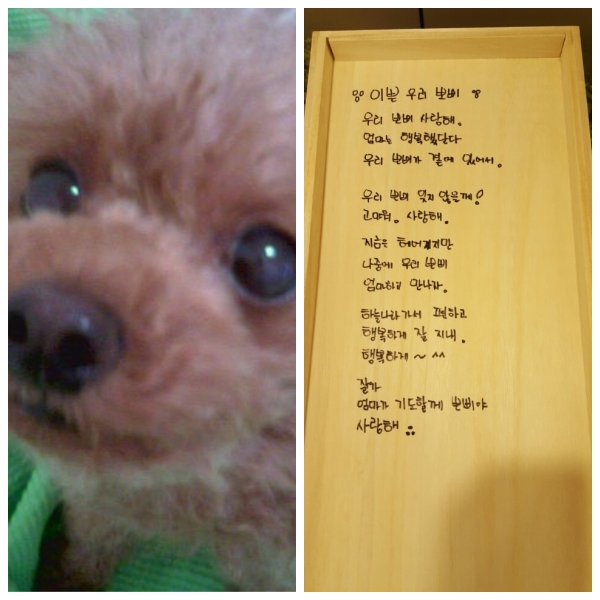 이쁜 우리 뽀삐
우리 뽀삐 사랑해.
엄마는 행복했단다
우리 뽀삐가 곁에 있어서.
우리 뽀삐 잊지 않을께!
고마워. 사랑해.
지금은 헤어지지만
나중에 우리 뽀삐
엄마하고 만나자.
하늘나라가서 편하고
행복하게 잘 지내.
행복하게 ~ ^^
잘가
엄마가 기도할께 뽀삐야
사랑해